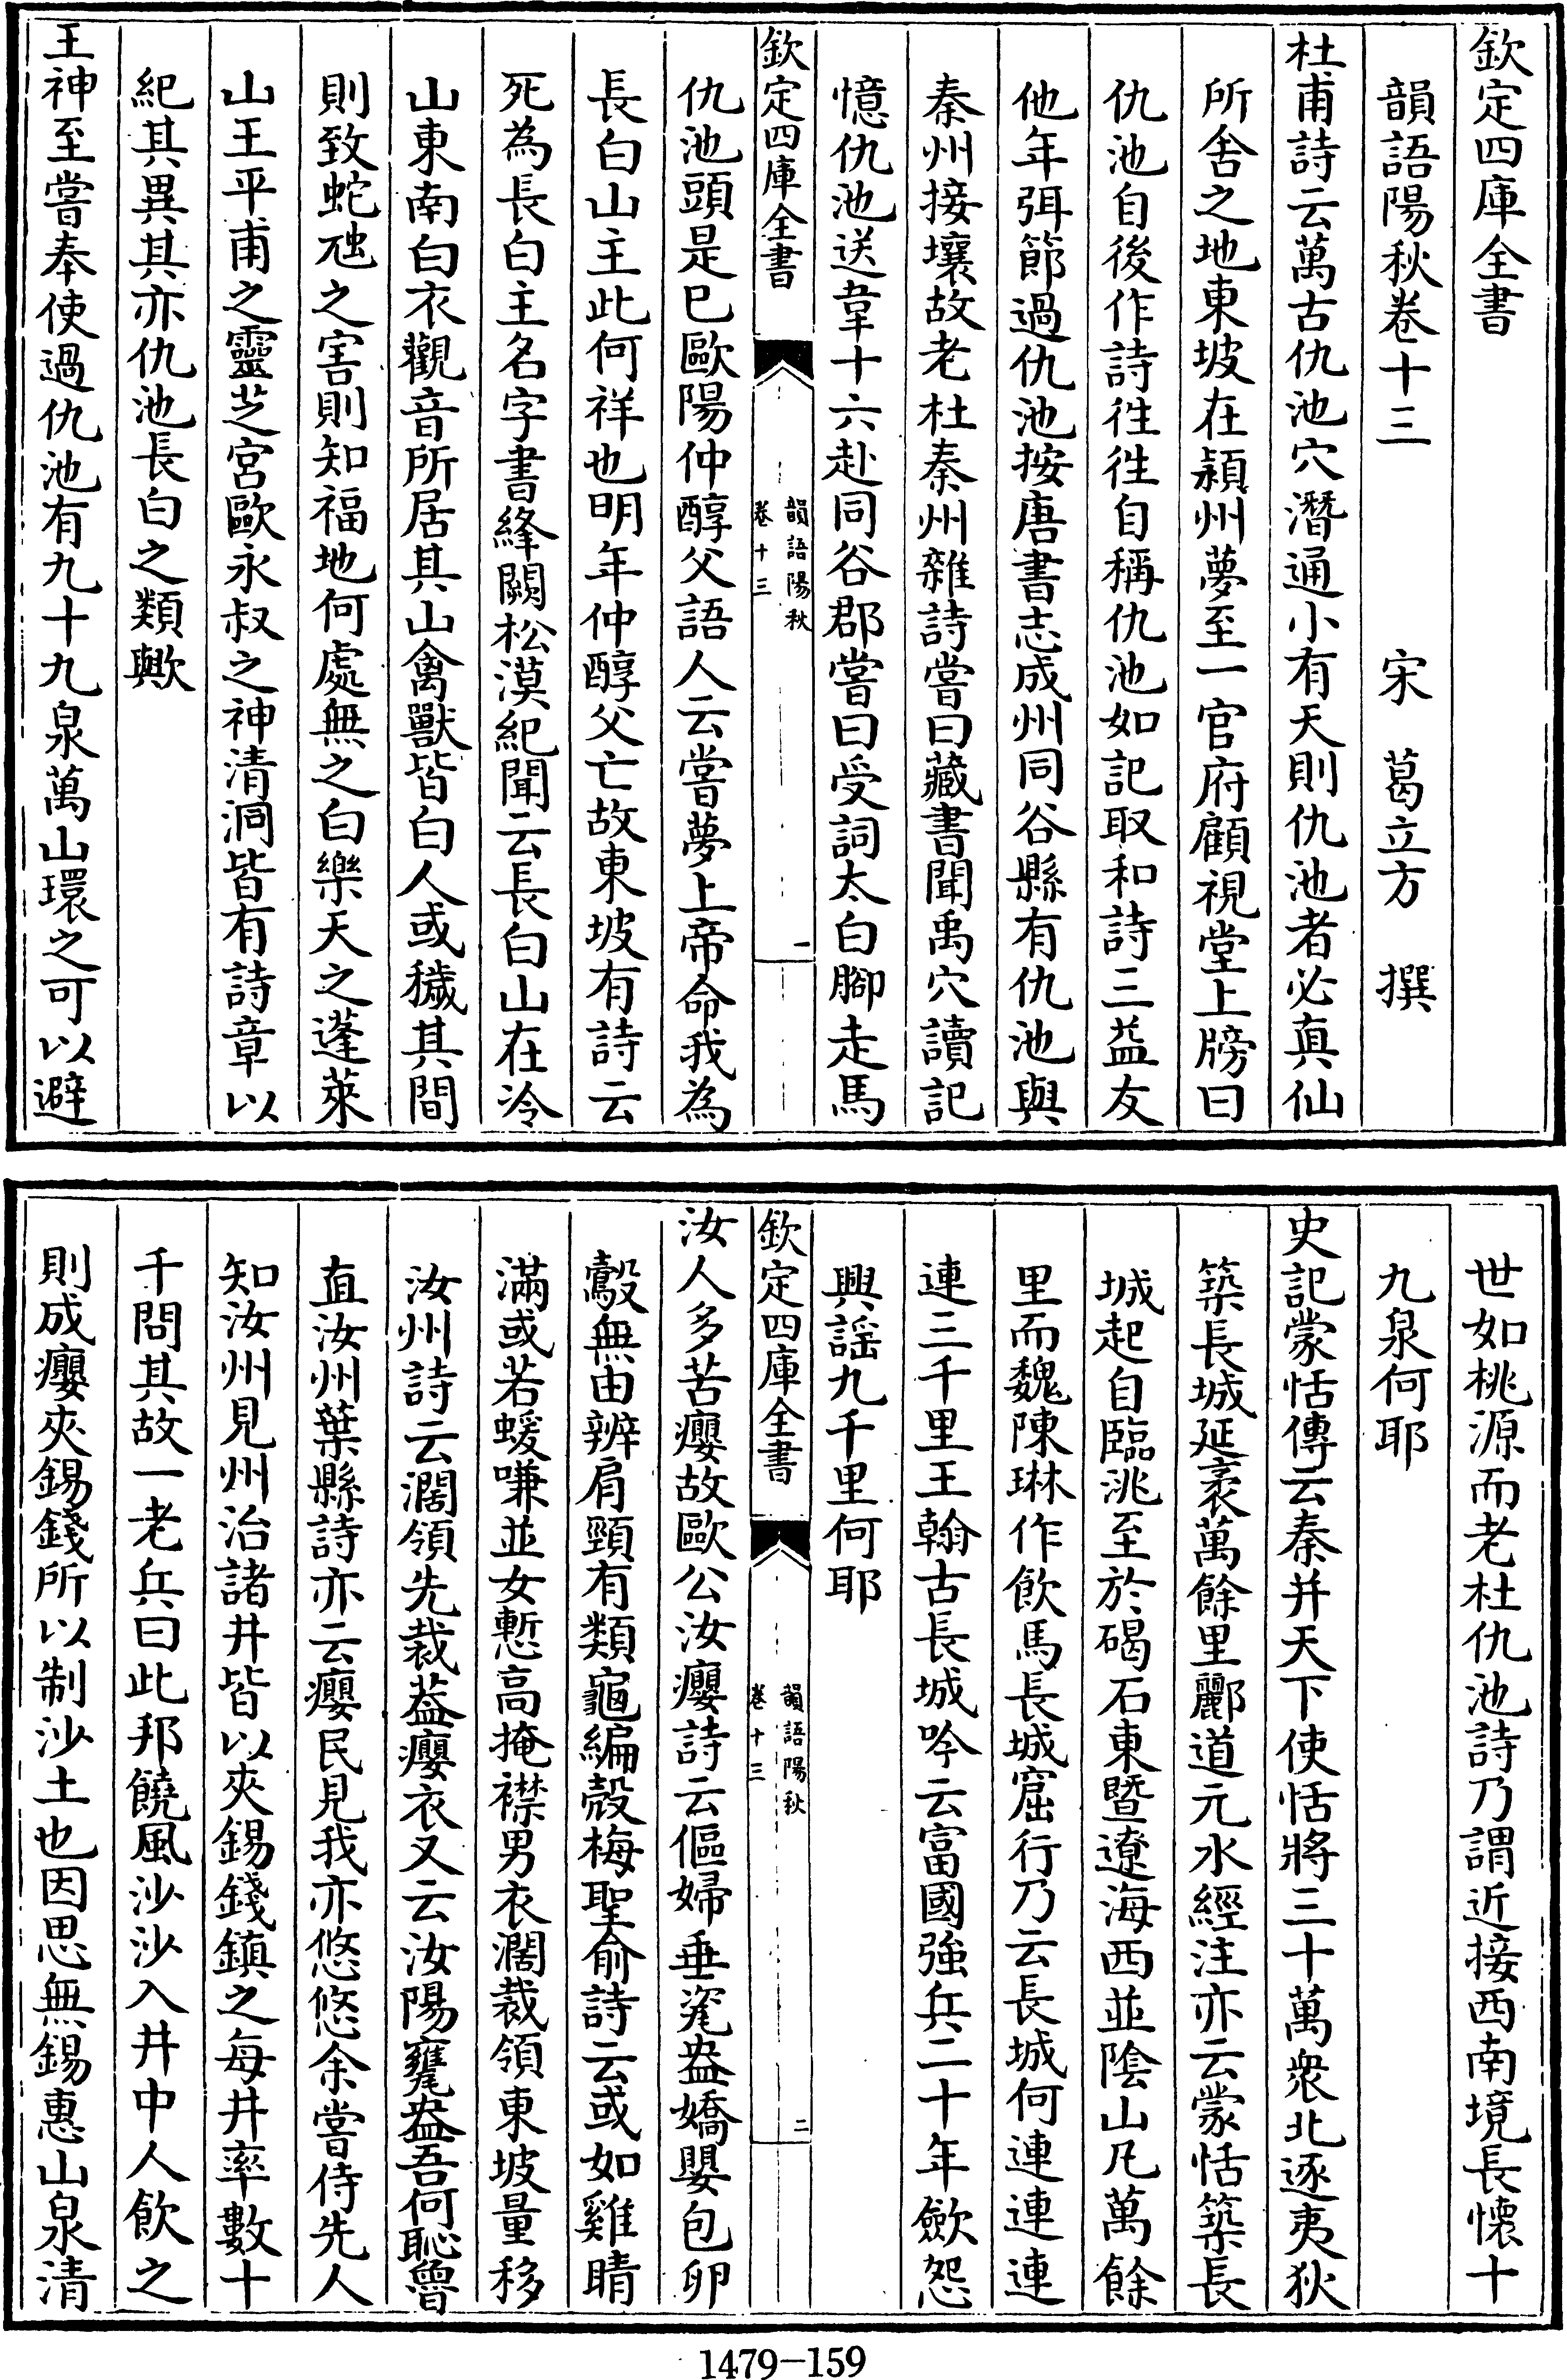 欽定四庫全書
韻語陽秋卷十三　宋　葛立方　撰
杜甫詩云萬古仇池穴潛通小有天則仇池者必真仙
所舍之地東坡在潁州夢至一官府顧視堂上牓曰
仇池自後作詩徃徃自稱仇池如記取和詩三益友
他年弭節過仇池按唐書志成州同谷縣有仇池與
秦州接壤故老杜秦州雜詩嘗曰藏書聞禹穴讀記
憶仇池送韋十六赴同谷郡嘗曰受詞太白腳走馬
欽定四庫全書
韻語陽秋
卷十三
一
仇池頭是已歐陽仲醇父語人云嘗夢上帝命我為
長白山主此何祥也明年仲醇父亡故東坡有詩云
死為長白主名字書絳闕松漠紀聞云長白山在冷
山東南白衣觀音所居其山禽獸皆白人或穢其間
則致蛇虺之害則知福地何處無之白樂天之蓬萊
山王平甫之靈芝宮歐永叔之神清洞皆有詩章以
紀其異其亦仇池長白之類歟
王神至嘗奉使過仇池有九十九泉萬山環之可以避
世如桃源而老杜仇池詩乃謂近接西南境長懷十
九泉何耶
史記蒙恬傳云秦并天下使恬將三十萬衆北逐夷狄
築長城延袤萬餘里酈道元水經注亦云蒙恬築長
城起自臨洮至於碣石東暨遼海西並陰山凡萬餘
里而魏陳琳作飲馬長城窟行乃云長城何連連連
連三千里王翰古長城吟云富國強兵二十年歛怨
興謡九千里何耶
欽定四庫全書
韻語陽秋
卷十三
二
汝人多苦癭故歐公汝癭詩云傴婦垂瓮盎嬌嬰包卵
鷇無由辨肩頸有類龜縮殼梅聖俞詩云或如雞嗉
滿或若蝯嗛並女慙高掩襟男衣濶裁領東坡量移
汝州詩云濶領先裁葢癭衣又云汝陽甕盎吾何恥魯
直汝州葉縣詩亦云癭民見我亦悠悠余嘗侍先人
知汝州見州治諸井皆以夾錫錢鎮之每井率數十
千問其故一老兵曰此邦饒風沙沙入井中人飲之
則成癭夾錫錢所以制沙土也因思無錫惠山泉清
1479-159